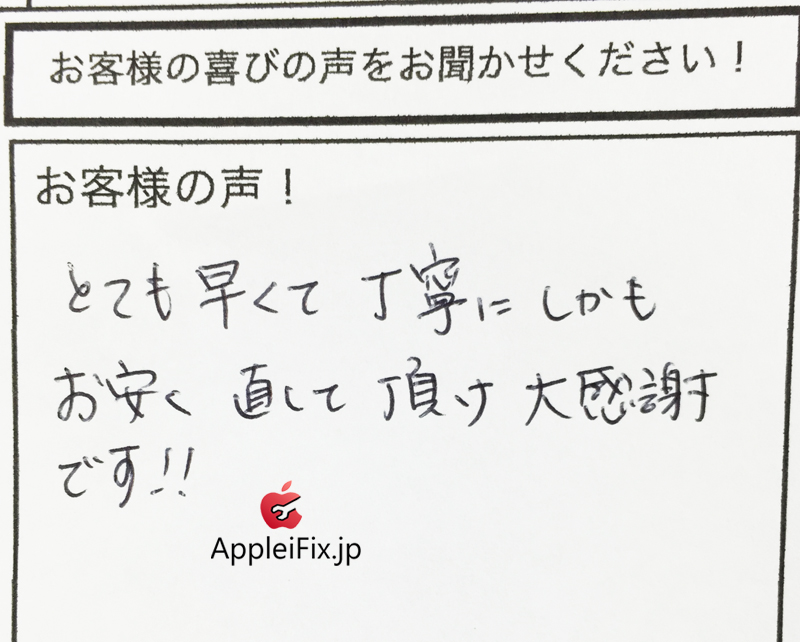 お客様の喜びの声をお聞かせください！
お客様の声！
とても早くて丁寧にしかも
お安く直して頂け大感謝
です!!
AppleiFix.jp